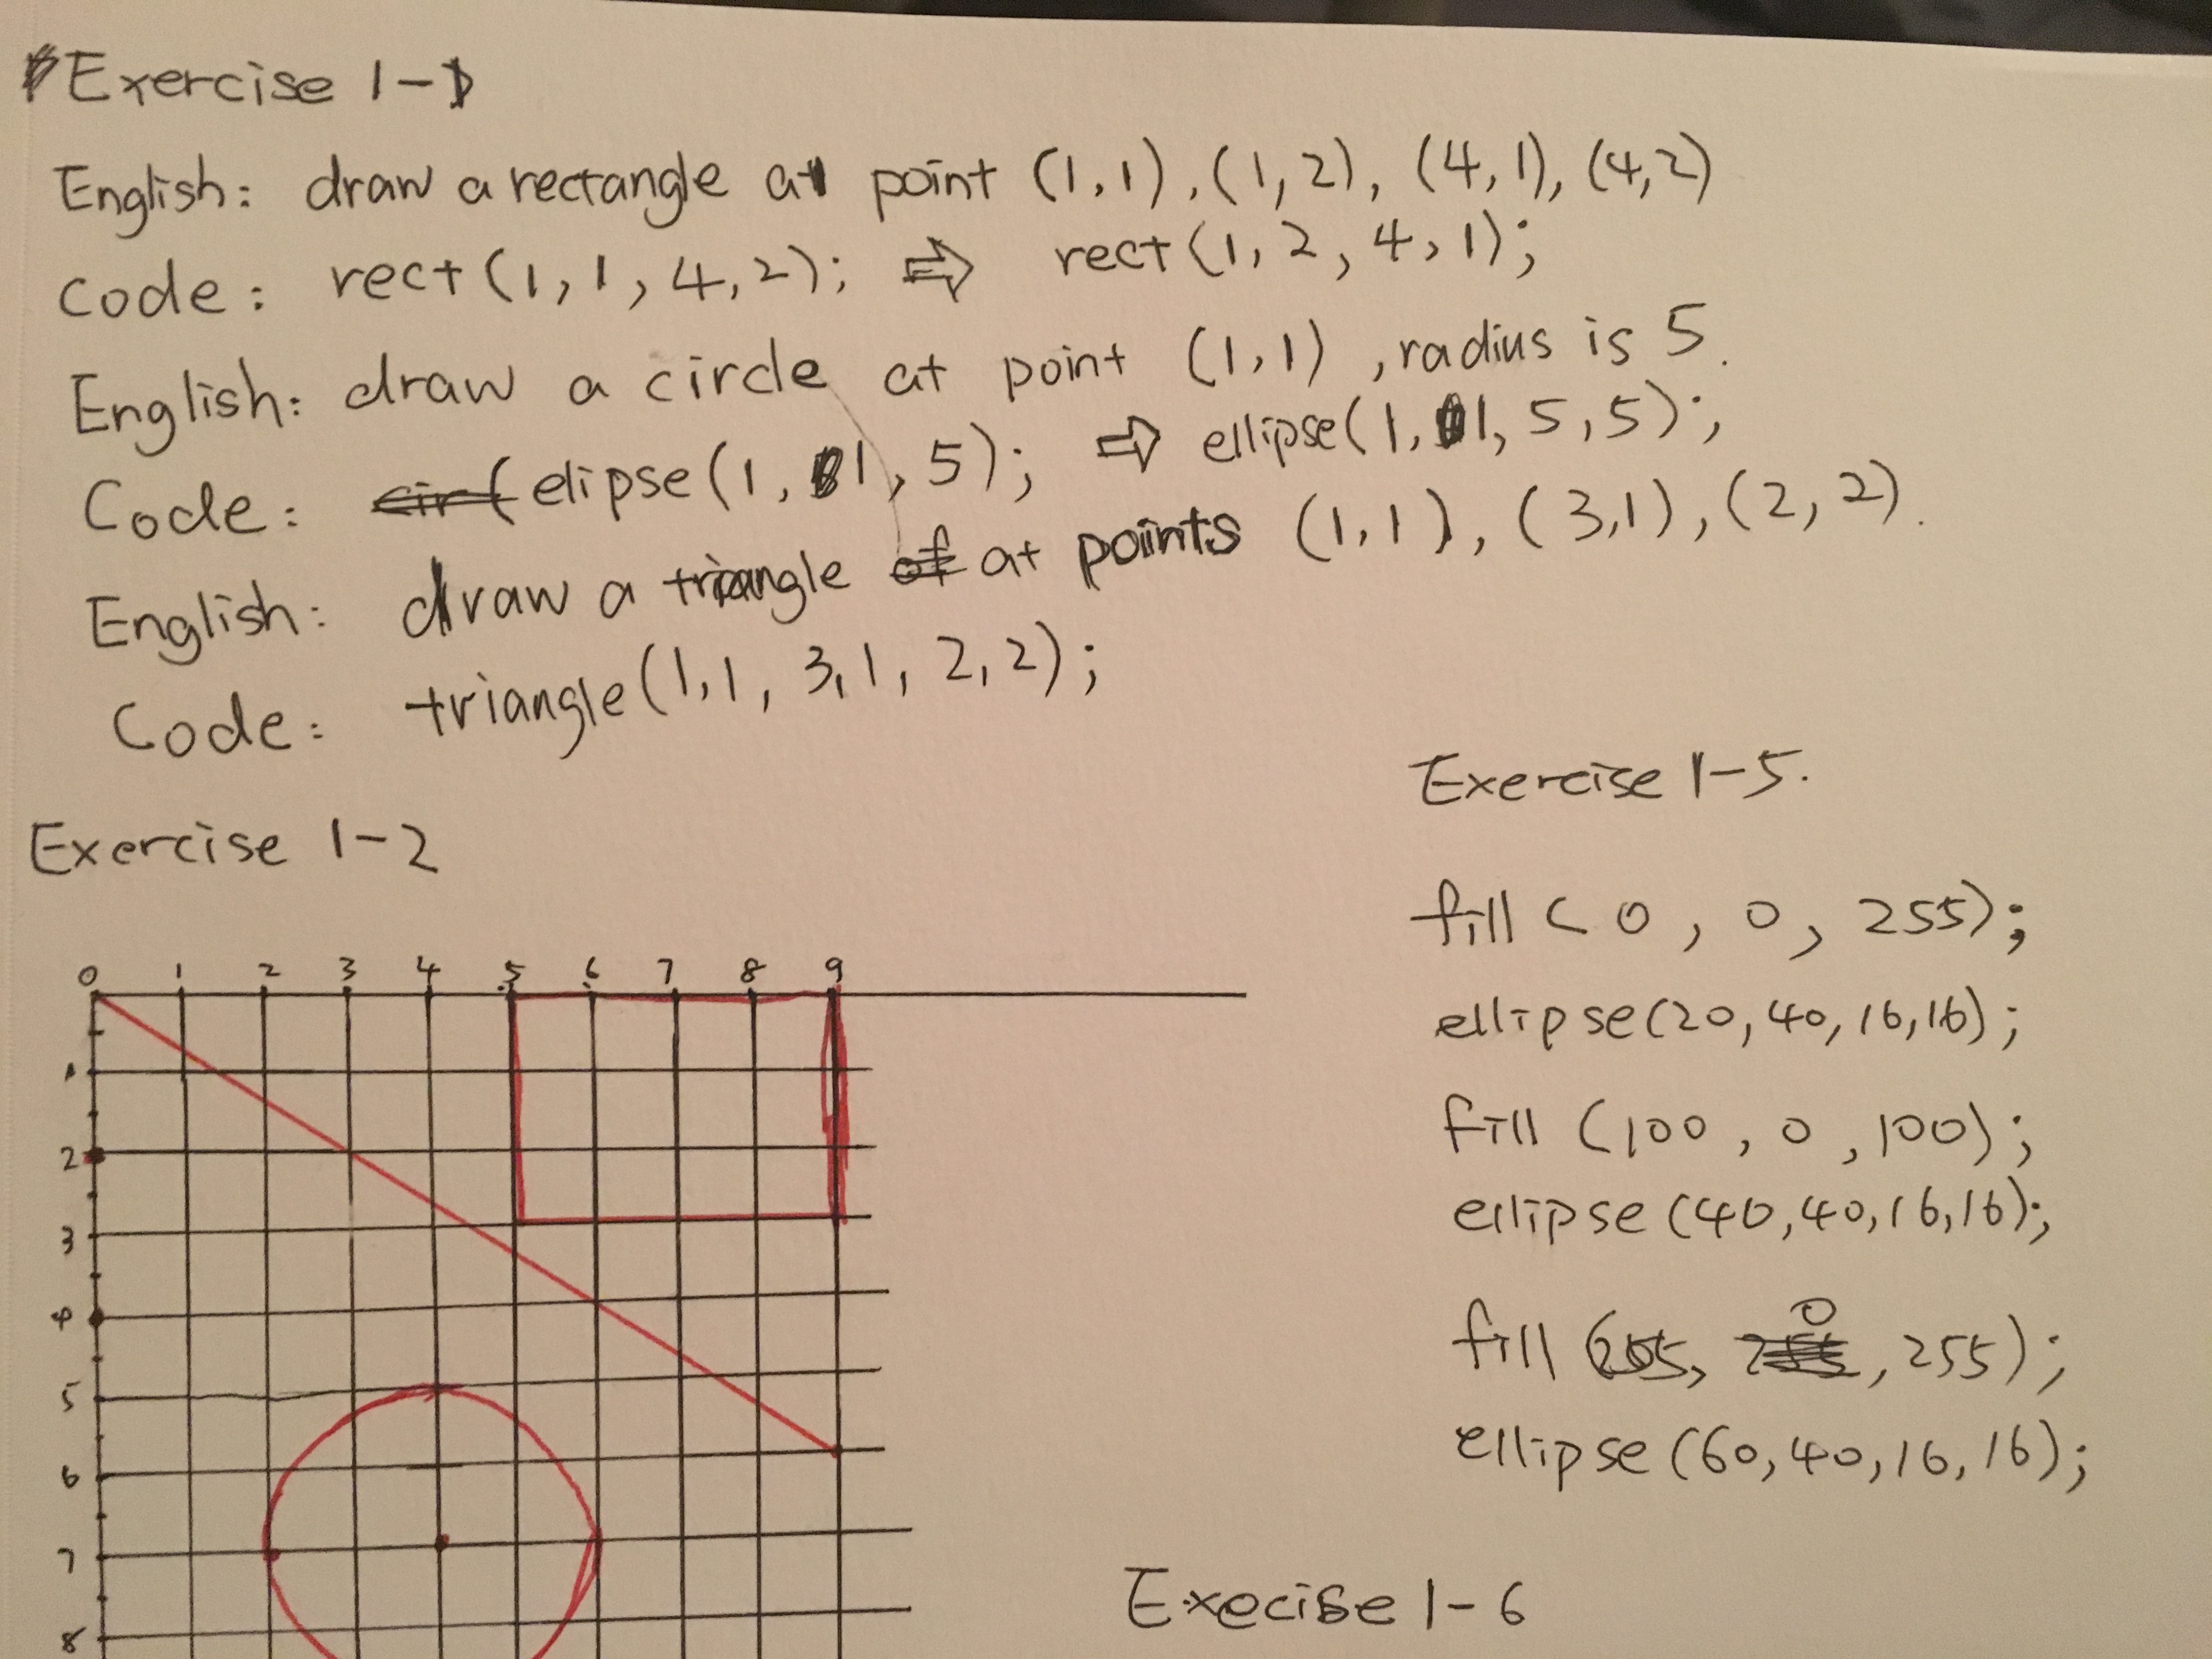 Exercise 1-1
English: draw a rectangle at point (1,1), (1,2), (4,1), (4,2)
Code: rect(1,1,4,2); ⇨ rect(1,2,4,1);
English: draw a circle at point (1,1), radius is 5.
Code: elipse(1,1,5); ⇨ ellipse(1,1,5,5);
English: draw a triangle of at points (1,1), (3,1), (2,2).
Code: triangle(1,1,3,1,2,2);
Exercise 1-2
0 1 2 3 4 5 6 7 8 9
1
2
3
4
5
6
7
8
Exercise 1-5.
fill(0, 0, 255);
ellipse(20,40,16,16);
fill(100, 0, 100);
ellipse(40,40,16,16);
fill(255, 0, 255);
ellipse(60,40,16,16);
Execise 1-6